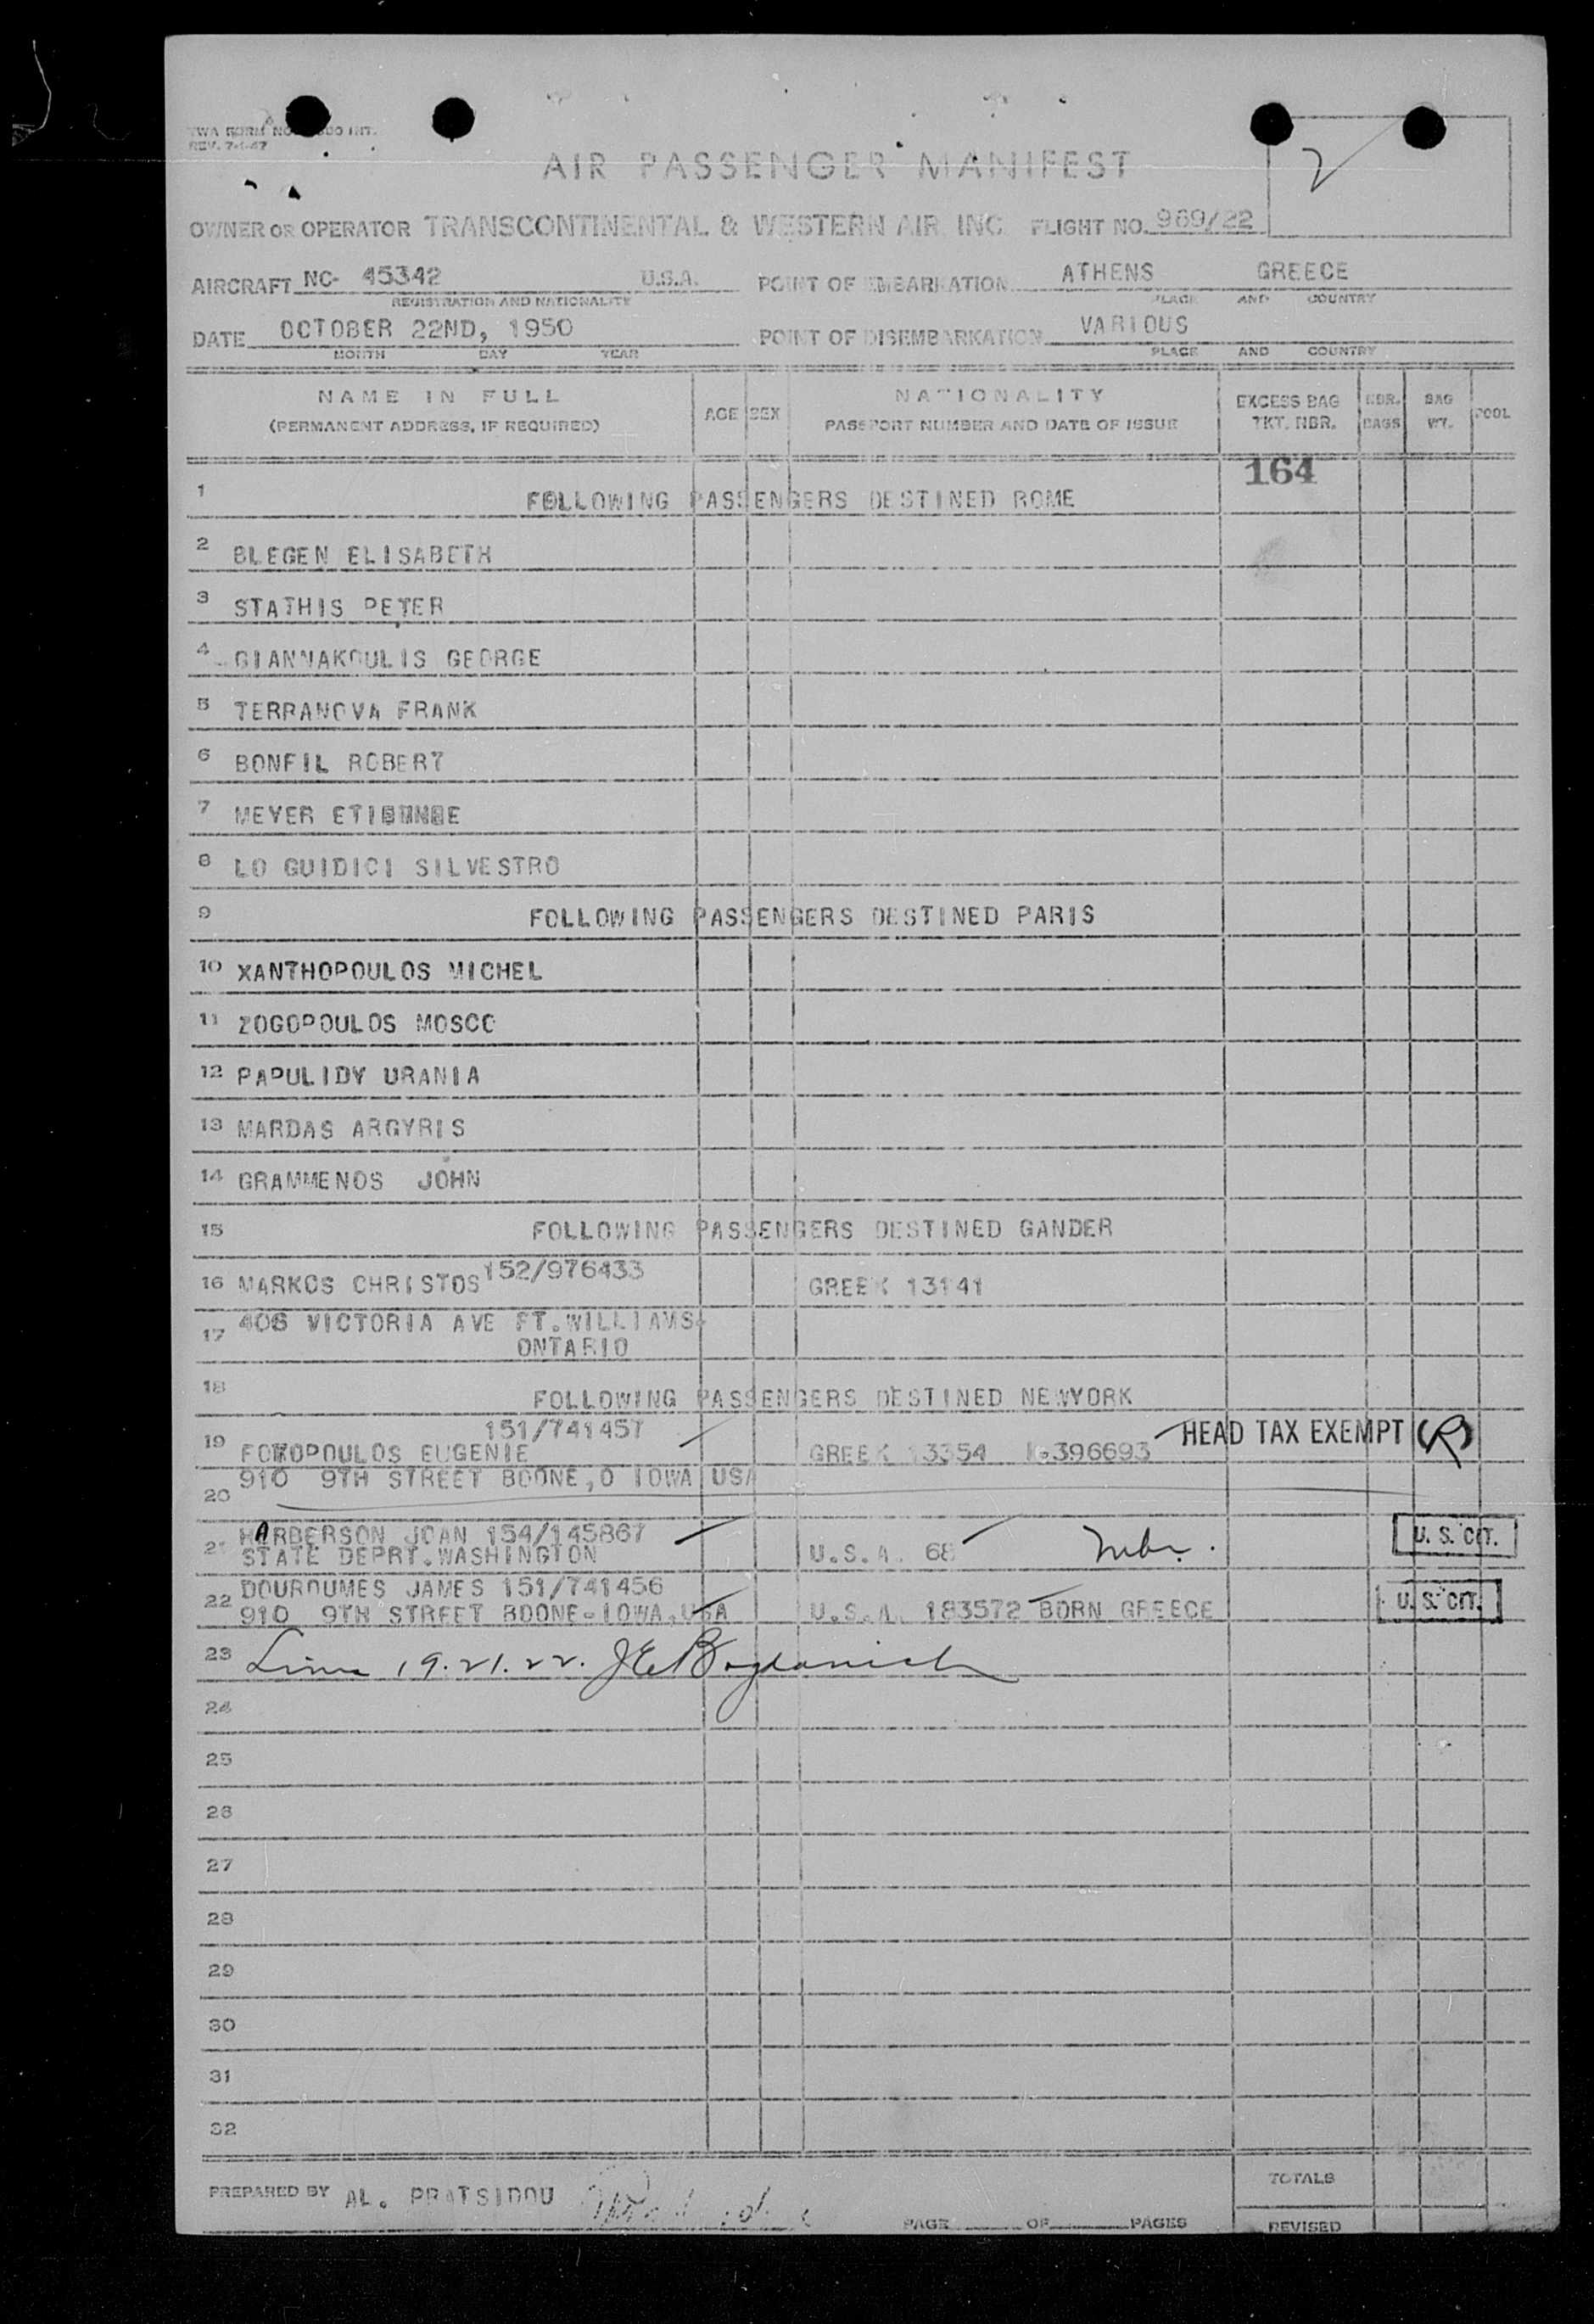 TWA FORM NO. 500 INT.
REV. 7-1-47
2
AIR PASSENGER MANIFEST
OWNER OR OPERATOR TRANSCONTINENTAL & WESTERN AIR INC FLIGHT NO. 969/22
AIRCRAFT NC- 45342 U.S.A. POINT OF EMBARKATION ATHENS GREECE
REGISTRATION AND NATIONALITY PLACE AND COUNTRY
DATE OCTOBER 22ND, 1950 POINT OF DISEMBARKATION VARIOUS
MONTH DAY YEAR PLACE AND COUNTRY
NAME IN FULL AGE SEX NATIONALITY EXCESS BAG NBR. BAG POOL
(PERMANENT ADDRESS, IF REQUIRED) PASSPORT NUMBER AND DATE OF ISSUE TKT. NBR. BAGS WT.
164
1 FOLLOWING PASSENGERS DESTINED ROME
2 BLEGEN ELISABETH
3 STATHIS PETER
4 GIANNAKOULIS GEORGE
5 TERRANOVA FRANK
6 BONFIL ROBERT
7 MEYER
8 LO GUIDICI SILVESTRO
9 FOLLOWING PASSENGERS DESTINED PARIS
10 XANTHOPOULOS MICHEL
11 ZOGOPOULOS MOSCO
12 PAPULIDY URANIA
13 MARDAS ARGYRIS
14 GRAMMENOS JOHN
15 FOLLOWING PASSENGERS DESTINED GANDER
16 MARKOS CHRISTOS 152/976433 GREEK 13141
17 406 VICTORIA AVE FT.WILLIAMS-
ONTARIO
18 FOLLOWING PASSENGERS DESTINED NEWYORK
151/741457
19 FOTOPOULOS EUGENIE GREEK 13354 396693 HEAD TAX EXEMPT (R)
20 910 9TH STREET BOONE,O IOWA USA
21 HARBERSON JOAN 154/145867
STATE DEPRT.WASHINGTON U.S.A. 68 U. S. CIT.
22 DOUROUMES JAMES 151/741456
910 9TH STREET BOONE-IOWA,USA U.S.A. 183572 BORN GREECE U. S. CIT.
23 Lines 19.21.22. J E Bogdanich
24
25
26
27
28
29
30
31
32
TOTALS
PREPARED BY AL. PRATSIDOU PAGE OF PAGES
REVISED